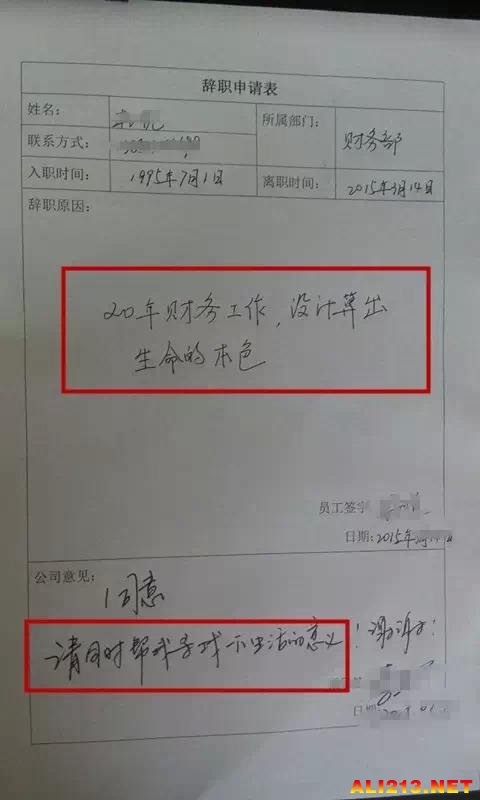 辞职申请表
姓名： 所属部门： 财务部
联系方式：
入职时间： 1995年7月1日 离职时间： 2015年3月14日
辞职原因：
20年财务工作，没计算出
生命的本色
员工签字
日期：2015年
公司意见：
同意
请同时帮我寻找一下生活的意义！谢谢！
日期
ALI213.NET